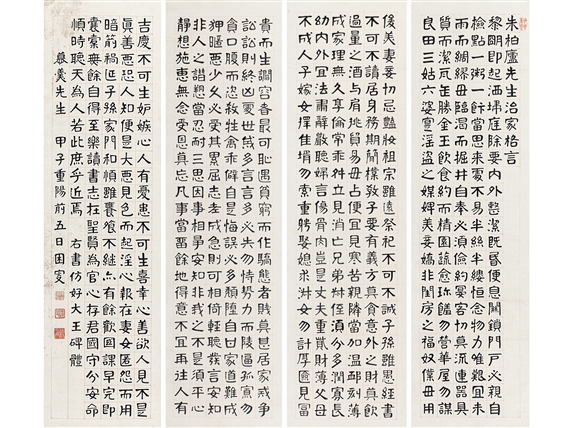 朱柏廬先生治家格言
黎朙即起洒埽庭除要內外整潔既昬便息關鎖門戶必親自
檢點一粥一飯當思來處不易半絲半縷恒念物力維艱宜未
雨而綢繆毋臨渴而掘井自奉必須儉約宴客切莫流連器具
質而潔瓦缶勝金玉飲食約而精園蔬愈珍饈勿營華屋勿謀
良田三姑六婆實淫盜之媒婢美妾嬌非閨房之福奴僕毋用
俊美妻妾切忌豔妝祖宗雖遠祭祀不可不誠子孫雖愚經書
不可不讀居身務期簡樸敎子要有義方莫貪意外之財莫飲
過量之酒與肩挑貿易毋占便宜見寒苦親隣當加溫卹刻薄
成家理無久享倫常乖舛立見消亡兄弟叔姪須分多潤寡長
幼內外宜法肅辭嚴聽婦言傷骨肉豈是丈夫重貲財薄父母
不成人子嫁女擇佳壻勿索重聘娶媳求淑女勿計厚匳見富
貴而生諂容者最可恥遇貧窮而作驕態者賤莫甚居家戒爭
訟訟則終凶處世戒多言言多必失勿恃勢力而凌逼孤寡勿
貪口腹而恣殺牲禽乖僻自是悔誤必多頹惰自甘家道難成
狎暱惡少久必受其累屈志老成急則可相倚輕聽發言安知
非人之譖愬當忍耐三思因事相爭安知非我之不是須平心
靜想施惠無念受恩莫忘凡事當留餘地得意不宜再往人有
吉慶不可生妒嫉心人有憂患不可生喜幸心善欲人見不是
真善惡恐人知便是大惡見色而起淫心報在妻女匿怨而用
暗箭禍延子孫家門和順雖饔飧不繼亦有餘歡囯課早完即
囊橐無餘自得至樂讀書志在聖賢為官心存君國守分安命
順時聽天為人若此庶乎近焉 右書仿好大王碑體
先生 甲子重陽前五日